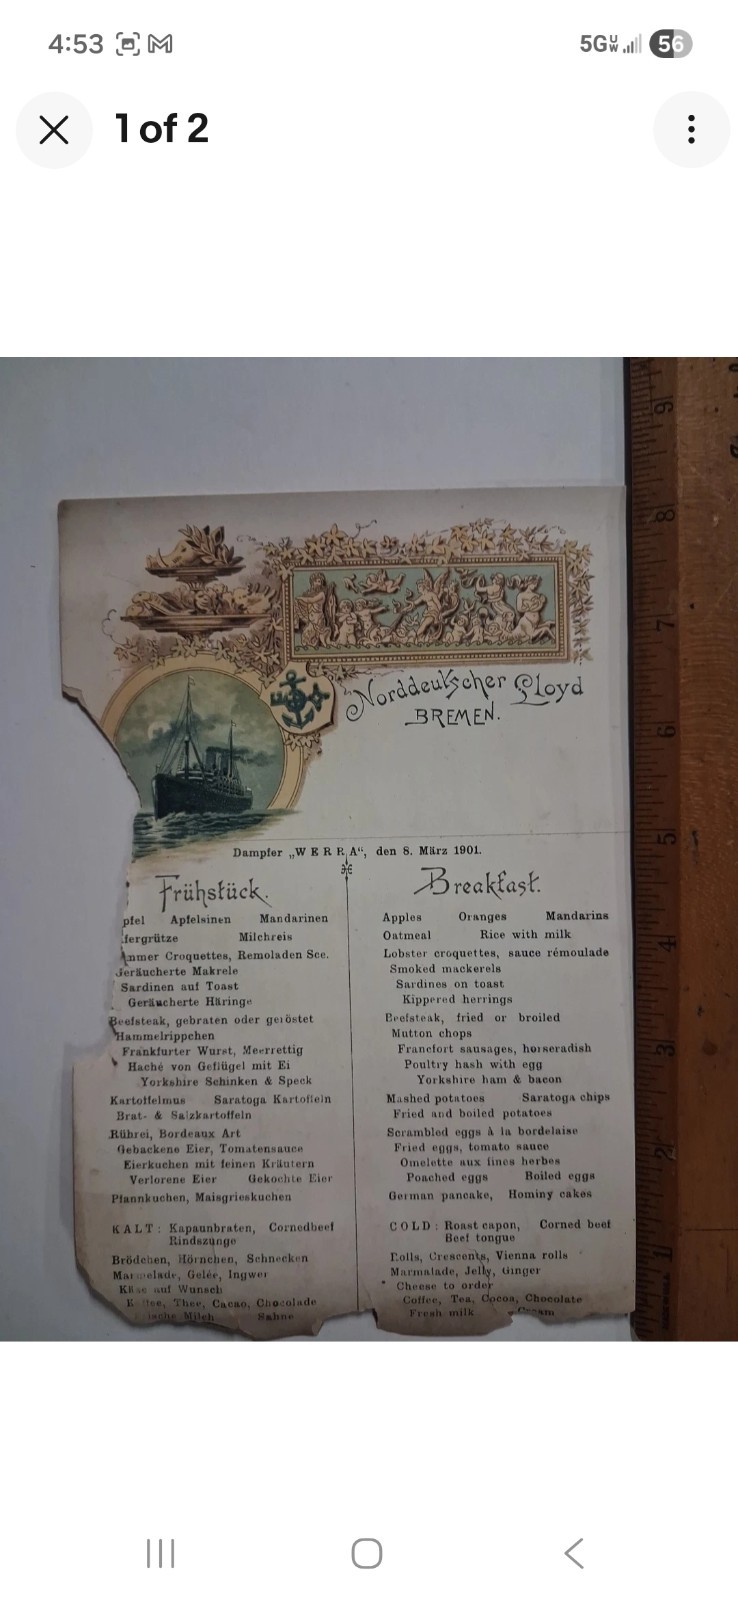 4:53
5G UW
56
1 of 2
Norddeutscher Lloyd
BREMEN.
Dampfer „WERRA“, den 8. März 1901.
Frühstück.
pfel Apfelsinen Mandarinen
fergrütze Milchreis
mmer Croquettes, Remoladen Sce.
Geräucherte Makrele
Sardinen auf Toast
Geräucherte Häringe
Beefsteak, gebraten oder geröstet
Hammelrippchen
Frankfurter Wurst, Meerrettig
Haché von Geflügel mit Ei
Yorkshire Schinken & Speck
Kartoffelmus Saratoga Kartoffeln
Brat- & Salzkartoffeln
Rührei, Bordeaux Art
Gebackene Eier, Tomatensauce
Eierkuchen mit feinen Kräutern
Verlorene Eier Gekochte Eier
Pfannkuchen, Maisgrieskuchen
KALT: Kapaunbraten, Cornedbeef
Rindszunge
Brödchen, Hörnchen, Schnecken
Marmelade, Gelée, Ingwer
Käse auf Wunsch
Kaffee, Thee, Cacao, Chocolade
Milch Sahne
Breakfast.
Apples Oranges Mandarins
Oatmeal Rice with milk
Lobster croquettes, sauce rémoulade
Smoked mackerels
Sardines on toast
Kippered herrings
Beefsteak, fried or broiled
Mutton chops
Francfort sausages, horseradish
Poultry hash with egg
Yorkshire ham & bacon
Mashed potatoes Saratoga chips
Fried and boiled potatoes
Scrambled eggs à la bordelaise
Fried eggs, tomato sauce
Omelette aux fines herbes
Poached eggs Boiled eggs
German pancake, Hominy cakes
COLD: Roast capon, Corned beef
Beef tongue
Rolls, Crescents, Vienna rolls
Marmalade, Jelly, Ginger
Cheese to order
Coffee, Tea, Cocoa, Chocolate
Fresh milk Cream
9
8
7
6
5
4
3
2
1